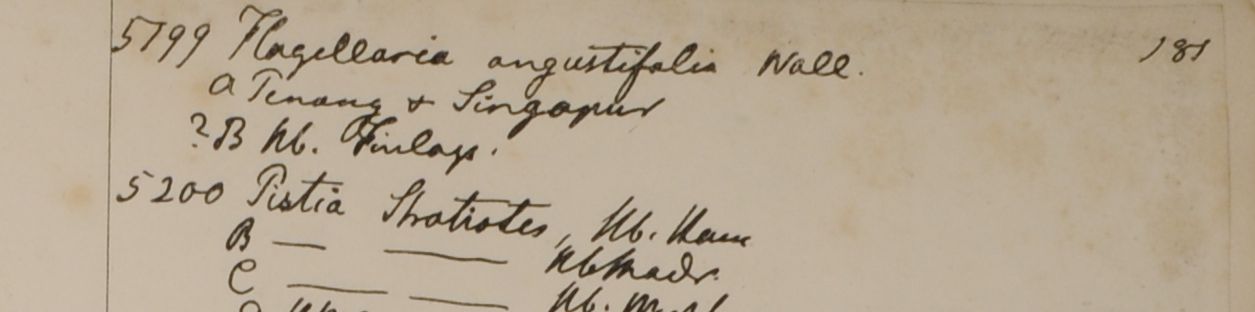 5199 Flagellaria angustifolia Wall. 181
a Penang & Singapur
? B hb. Finlays.
5200 Pistia Stratiotes, Hb. Ham
B — — Hb Madr.
C — — Hb.